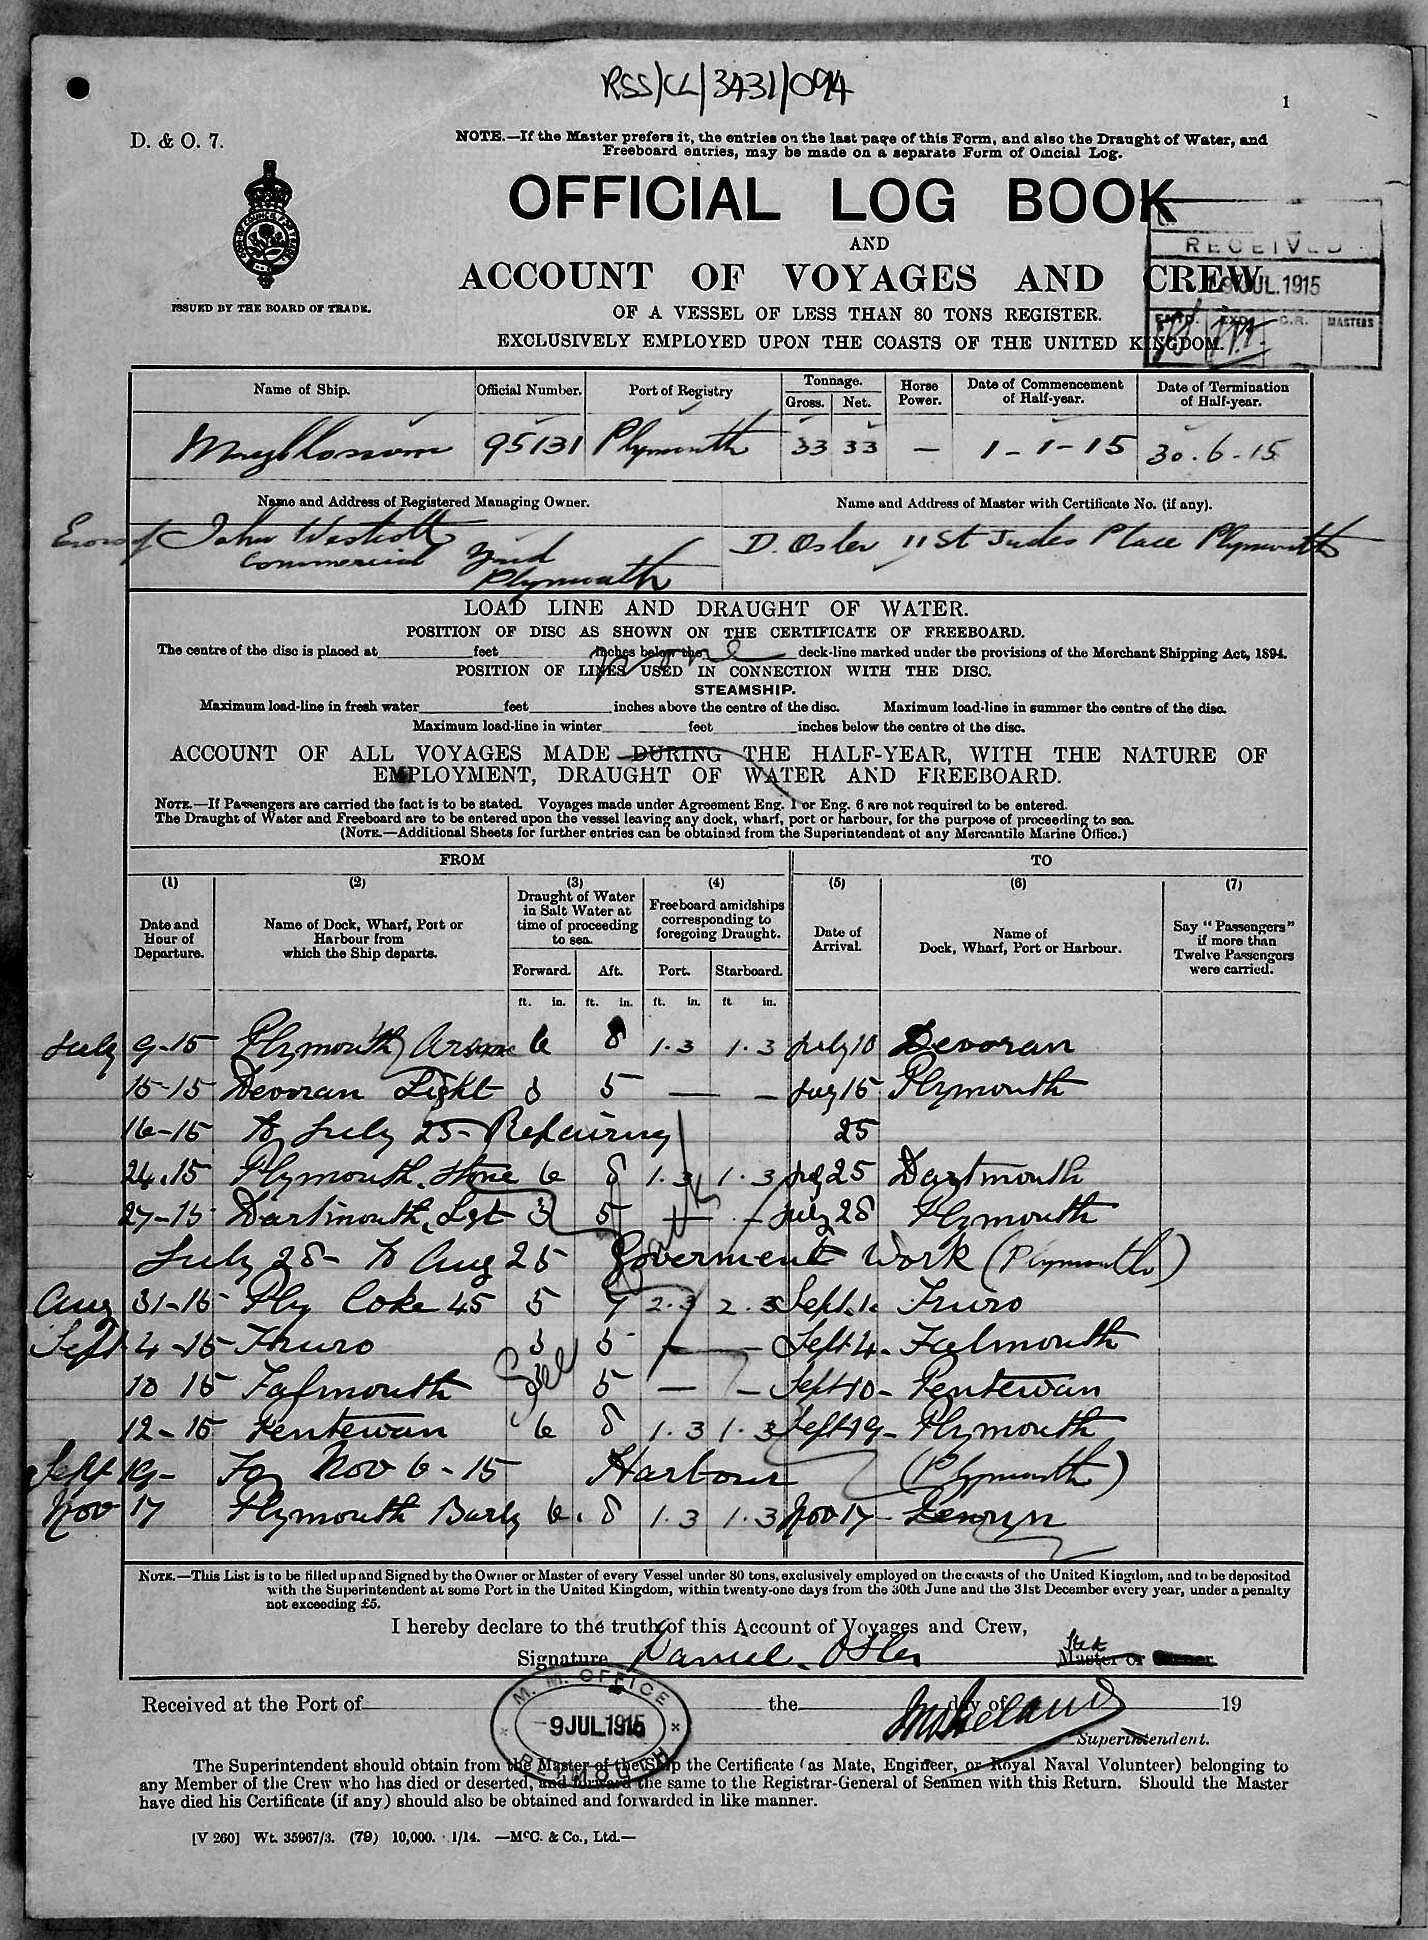 RSS/CL/3431/094
1
D. & O. 7.
NOTE.—If the Master prefers it, the entries on the last page of this Form, and also the Draught of Water, and
Freeboard entries, may be made on a separate Form of Official Log.
OFFICIAL LOG BOOK
AND
ACCOUNT OF VOYAGES AND CREW
OF A VESSEL OF LESS THAN 80 TONS REGISTER.
EXCLUSIVELY EMPLOYED UPON THE COASTS OF THE UNITED KINGDOM.
ISSUED BY THE BOARD OF TRADE.
RECEIVED
9 JUL.1915
ENTD. EXD. C.R. MASTERS
Name of Ship. Official Number. Port of Registry Tonnage. Gross. Net. Horse Power. Date of Commencement of Half-year. Date of Termination of Half-year.
Mayblossom 95131 Plymouth 33 33 — 1-1-15 30.6.15
Name and Address of Registered Managing Owner. Name and Address of Master with Certificate No. (if any).
John D. Osler 11 St Judes Place Plymouth
Commercial Yard
Plymouth
LOAD LINE AND DRAUGHT OF WATER.
POSITION OF DISC AS SHOWN ON THE CERTIFICATE OF FREEBOARD.
The centre of the disc is placed at feet inches below the deck-line marked under the provisions of the Merchant Shipping Act, 1894.
none
POSITION OF LINES USED IN CONNECTION WITH THE DISC.
STEAMSHIP.
Maximum load-line in fresh water feet inches above the centre of the disc. Maximum load-line in summer the centre of the disc.
Maximum load-line in winter feet inches below the centre of the disc.
ACCOUNT OF ALL VOYAGES MADE DURING THE HALF-YEAR, WITH THE NATURE OF
EMPLOYMENT, DRAUGHT OF WATER AND FREEBOARD.
NOTE.—If Passengers are carried the fact is to be stated. Voyages made under Agreement Eng. 1 or Eng. 6 are not required to be entered.
The Draught of Water and Freeboard are to be entered upon the vessel leaving any dock, wharf, port or harbour, for the purpose of proceeding to sea.
(NOTE.—Additional Sheets for further entries can be obtained from the Superintendent of any Mercantile Marine Office.)
FROM TO
(1) (2) (3) (4) (5) (6) (7)
Date and Hour of Departure. Name of Dock, Wharf, Port or Harbour from which the Ship departs. Draught of Water in Salt Water at time of proceeding to sea. Freeboard amidships corresponding to foregoing Draught. Date of Arrival. Name of Dock, Wharf, Port or Harbour. Say "Passengers" if more than Twelve Passengers were carried.
Forward. Aft. Port. Starboard.
ft. in. ft. in. ft. in. ft in.
July 9-15 Plymouth 6 8 1.3 1.3 July 10 Devoran
15-15 Devoran Light 3 5 — — July 15 Plymouth
16-15 to July 25- Repairing 25
24.15 Plymouth. Stone 6 8 1.3 1.3 July 25 Dartmouth
27-15 Dartmouth, Lgt 3 5 — — July 28 Plymouth
July 28- to Aug 25 Goverment Work (Plymouth)
Aug 31-15 Ply Coke 45 5 7 2.3 2.3 Sept. 1. Truro
Sept 4-15 Truro 3 5 — — Sept 4- Falmouth
10 15 Falmouth 5 — — Sept 10- Pentewan
12-15 Pentewan 6 8 1.3 1.3 Sept 19- Plymouth
Sept 19- To Nov 6-15 Harbour (Plymouth)
Nov 17 Plymouth Barly 6. 8 1.3 1.3 Nov 17- Penryn
NOTE.—This List is to be filled up and Signed by the Owner or Master of every Vessel under 80 tons, exclusively employed on the coasts of the United Kingdom, and to be deposited
with the Superintendent at some Port in the United Kingdom, within twenty-one days from the 30th June and the 31st December every year, under a penalty
not exceeding £5.
I hereby declare to the truth of this Account of Voyages and Crew,
Signature Daniel Osler Master or Owner
Received at the Port of the day of 19
M. M. OFFICE
9 JUL 1915
PLYMOUTH
Superintendent.
The Superintendent should obtain from the Master of the Ship the Certificate (as Mate, Engineer, or Royal Naval Volunteer) belonging to
any Member of the Crew who has died or deserted, and forward the same to the Registrar-General of Seamen with this Return. Should the Master
have died his Certificate (if any) should also be obtained and forwarded in like manner.
[V 260] Wt. 35967/3. (79) 10,000. 1/14. —McC. & Co., Ltd.—